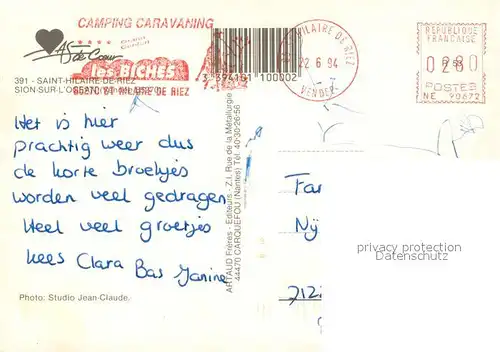 CAMPING CARAVANING
As de Coeur
Grand
Confort
les BICHES
85270 ST HILAIRE DE RIEZ
3 394151 100002
HILAIRE DE RIEZ
22.6.94
VENDEE
RÉPUBLIQUE
FRANÇAISE
0280
POSTES
NE 90672
391 - SAINT-HILAIRE-DE-RIEZ
SION-SUR-L'O
Het is hier
prachtig weer dus
de korte broekjes
worden veel gedragen
Heel veel groetjes
Kees Clara Bas Janine
ARTAUD Frères - Editeurs - Z.I. Rue de la Métallurgie
44470 CARQUEFOU (Nantes) Tél. 40-30-26-56
Fa
Ny
privacy protection
Datenschutz
Photo: Studio Jean-Claude.